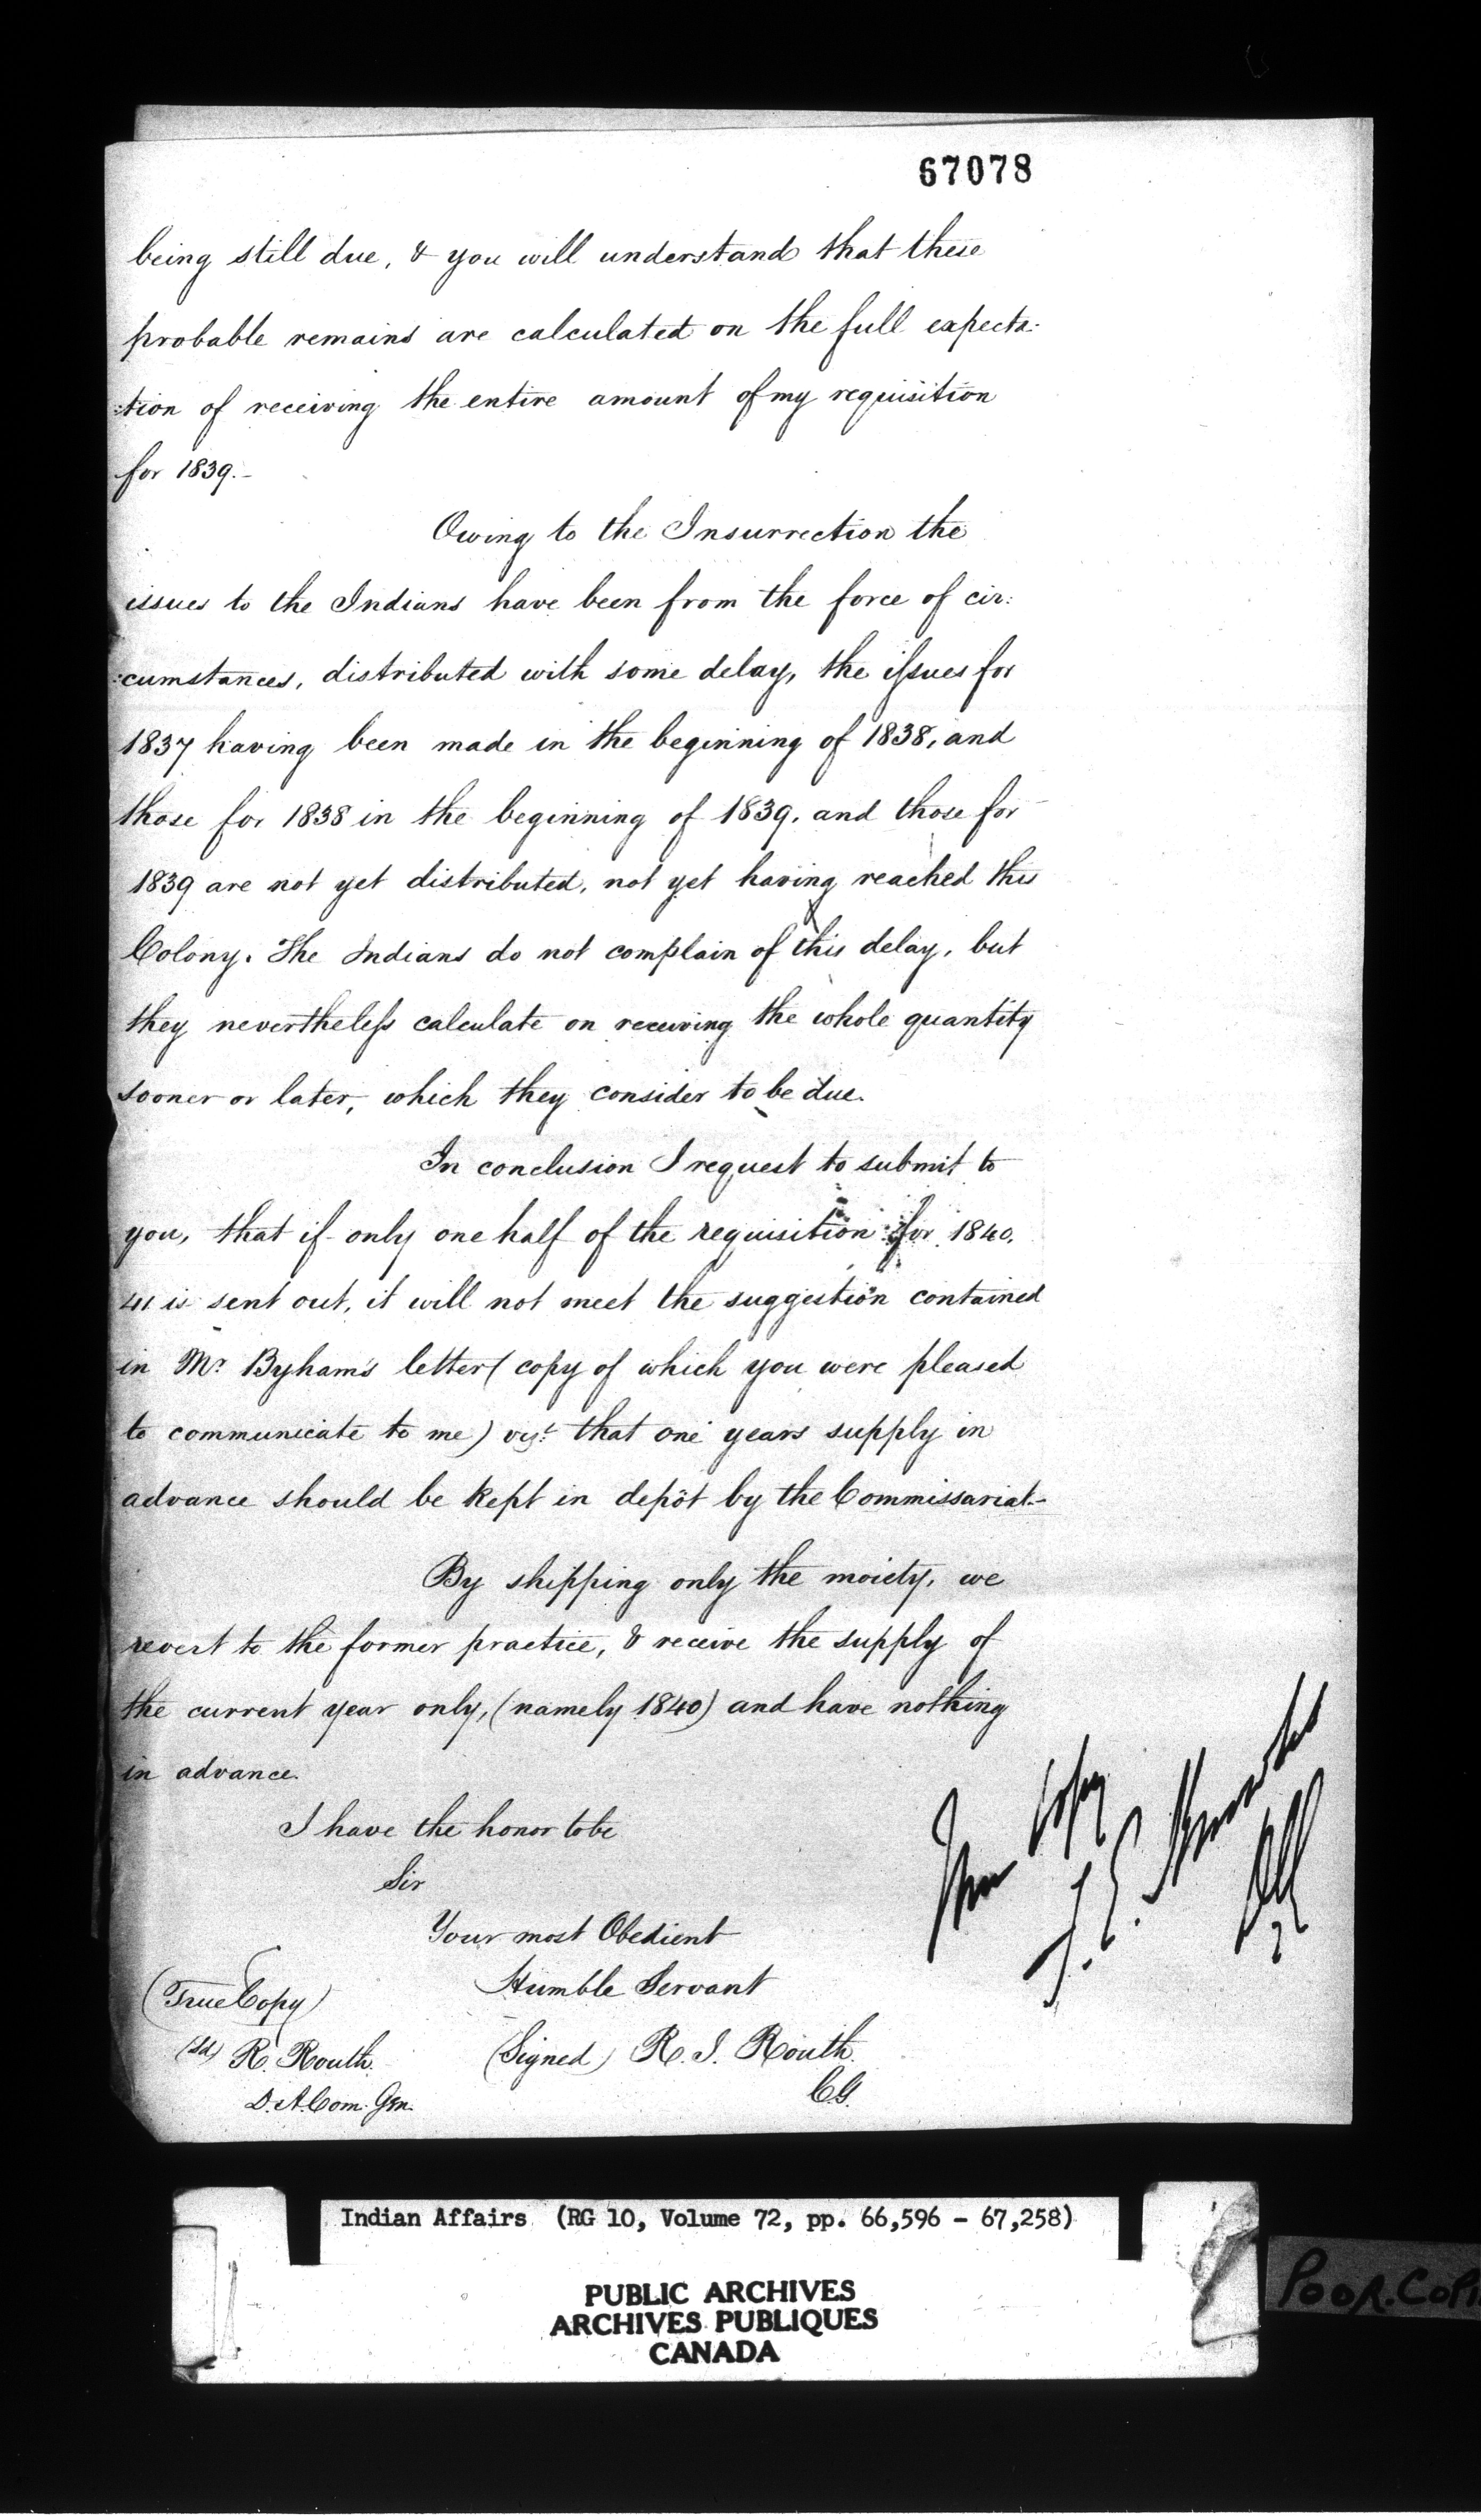 67078
being still due, & you will understand that these
probable remains are calculated on the full expecta:
:tion of receiving the entire amount of my requisition
for 1839.-
Owing to the Insurrection the
issues to the Indians have been from the force of cir:
:cumstances, distributed with some delay, the issues for
1837 having been made in the beginning of 1838, and
those for 1838 in the beginning of 1839, and those for
1839 are not yet distributed, not yet having reached this
Colony. The Indians do not complain of this delay, but
they nevertheless calculate on receiving the whole quantity
sooner or later, which they consider to be due.
In conclusion I request to submit to
you, that if only one half of the requisition for 1840.
41 is sent out, it will not meet the suggestion contained
in Mr. Byham's letter (copy of which you were pleased
to communicate to me) vizt. that one years supply in
advance should be kept in depôt by the Commissariat.-
By shipping only the moiety, we
revert to the former practice, & receive the supply of
the current year only, (namely 1840) and have nothing
in advance.
I have the honor to be
Sir
Your most Obedient
Humble Servant
(Signed) R. I. Routh.
C.G.
(True Copy)
(Sd) R. Routh.
D. A. Com. Gen.
True Copy
Indian Affairs (RG 10, Volume 72, pp. 66,596 - 67,258)
PUBLIC ARCHIVES
ARCHIVES PUBLIQUES
CANADA
POOR. COP